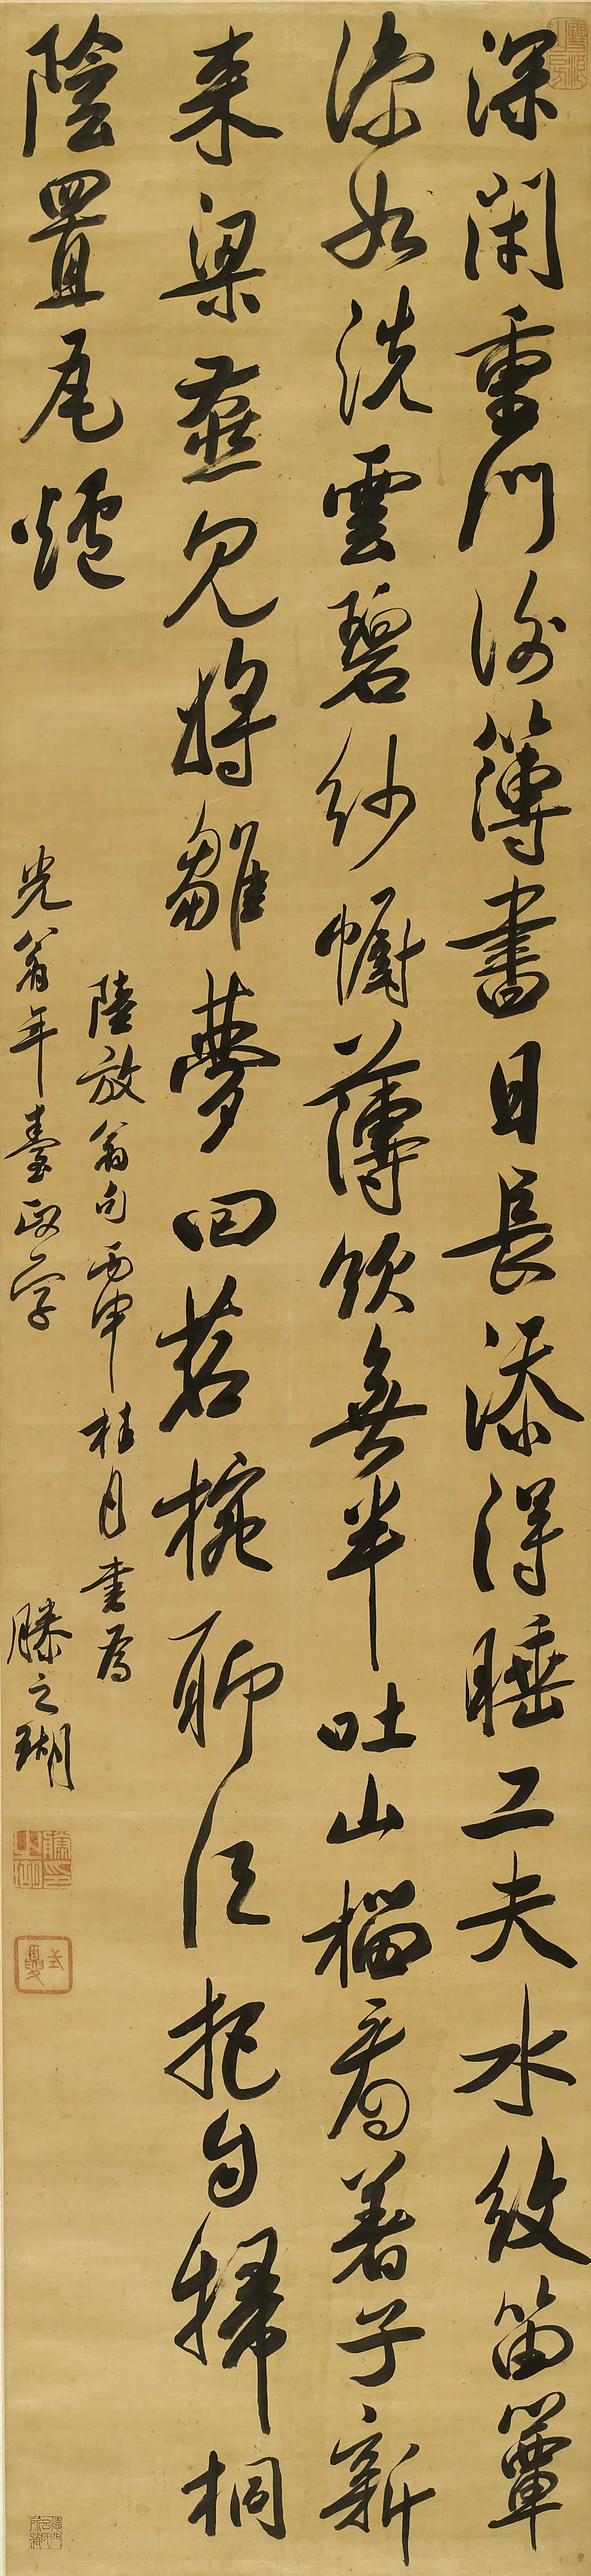 深閉重門謝簿書日長添得睡工夫水紋笛簟
涼如洗雲碧紗幮薄欲無半吐山榴看著子新
来梁燕見將雛夢回茗椀聊須把自掃桐
陰置瓦爐
陸放翁句丙申桂月書為
光翁年臺政字
滕之瑚